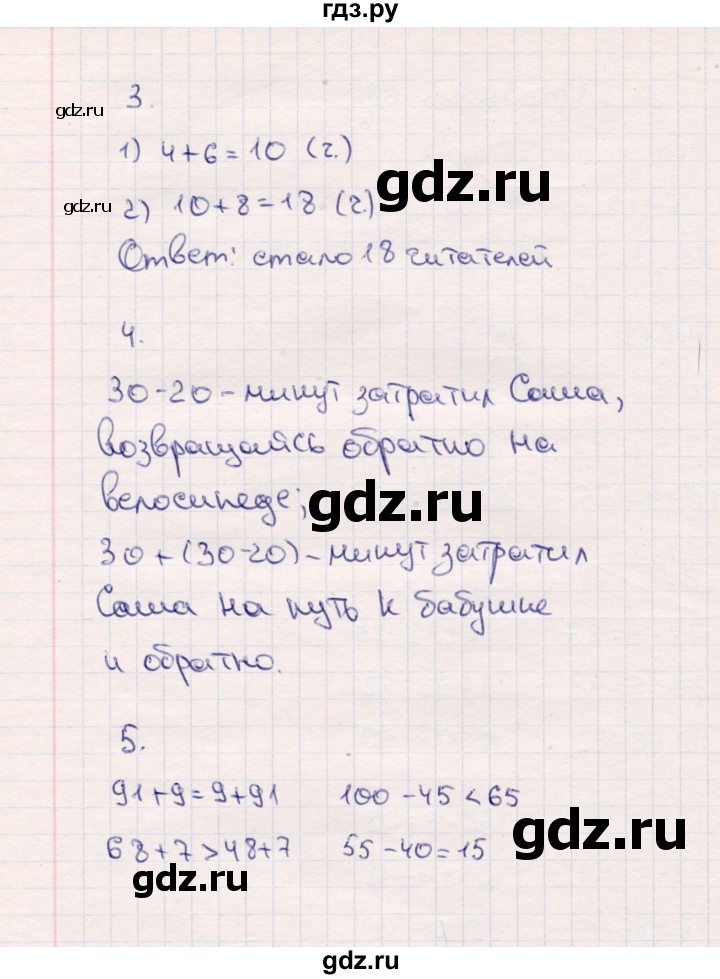 гдз.ру
3.
gdz.ru
1) 4+6=10 (г.)
gdz.ru
2) 10+8=18 (г.)
gdz.ru
Ответ: стало 18 читателей
4.
30-20 - минут затратил Саша,
возвращаясь обратно на
велосипеде;
gdz.ru
30+(30-20) - минут затратил
Саша на путь к бабушке
и обратно.
5.
91+9=9+91 100-45<65
gdz.ru
68+7>48+7 55-40=15
gdz.ru
gdz.ru